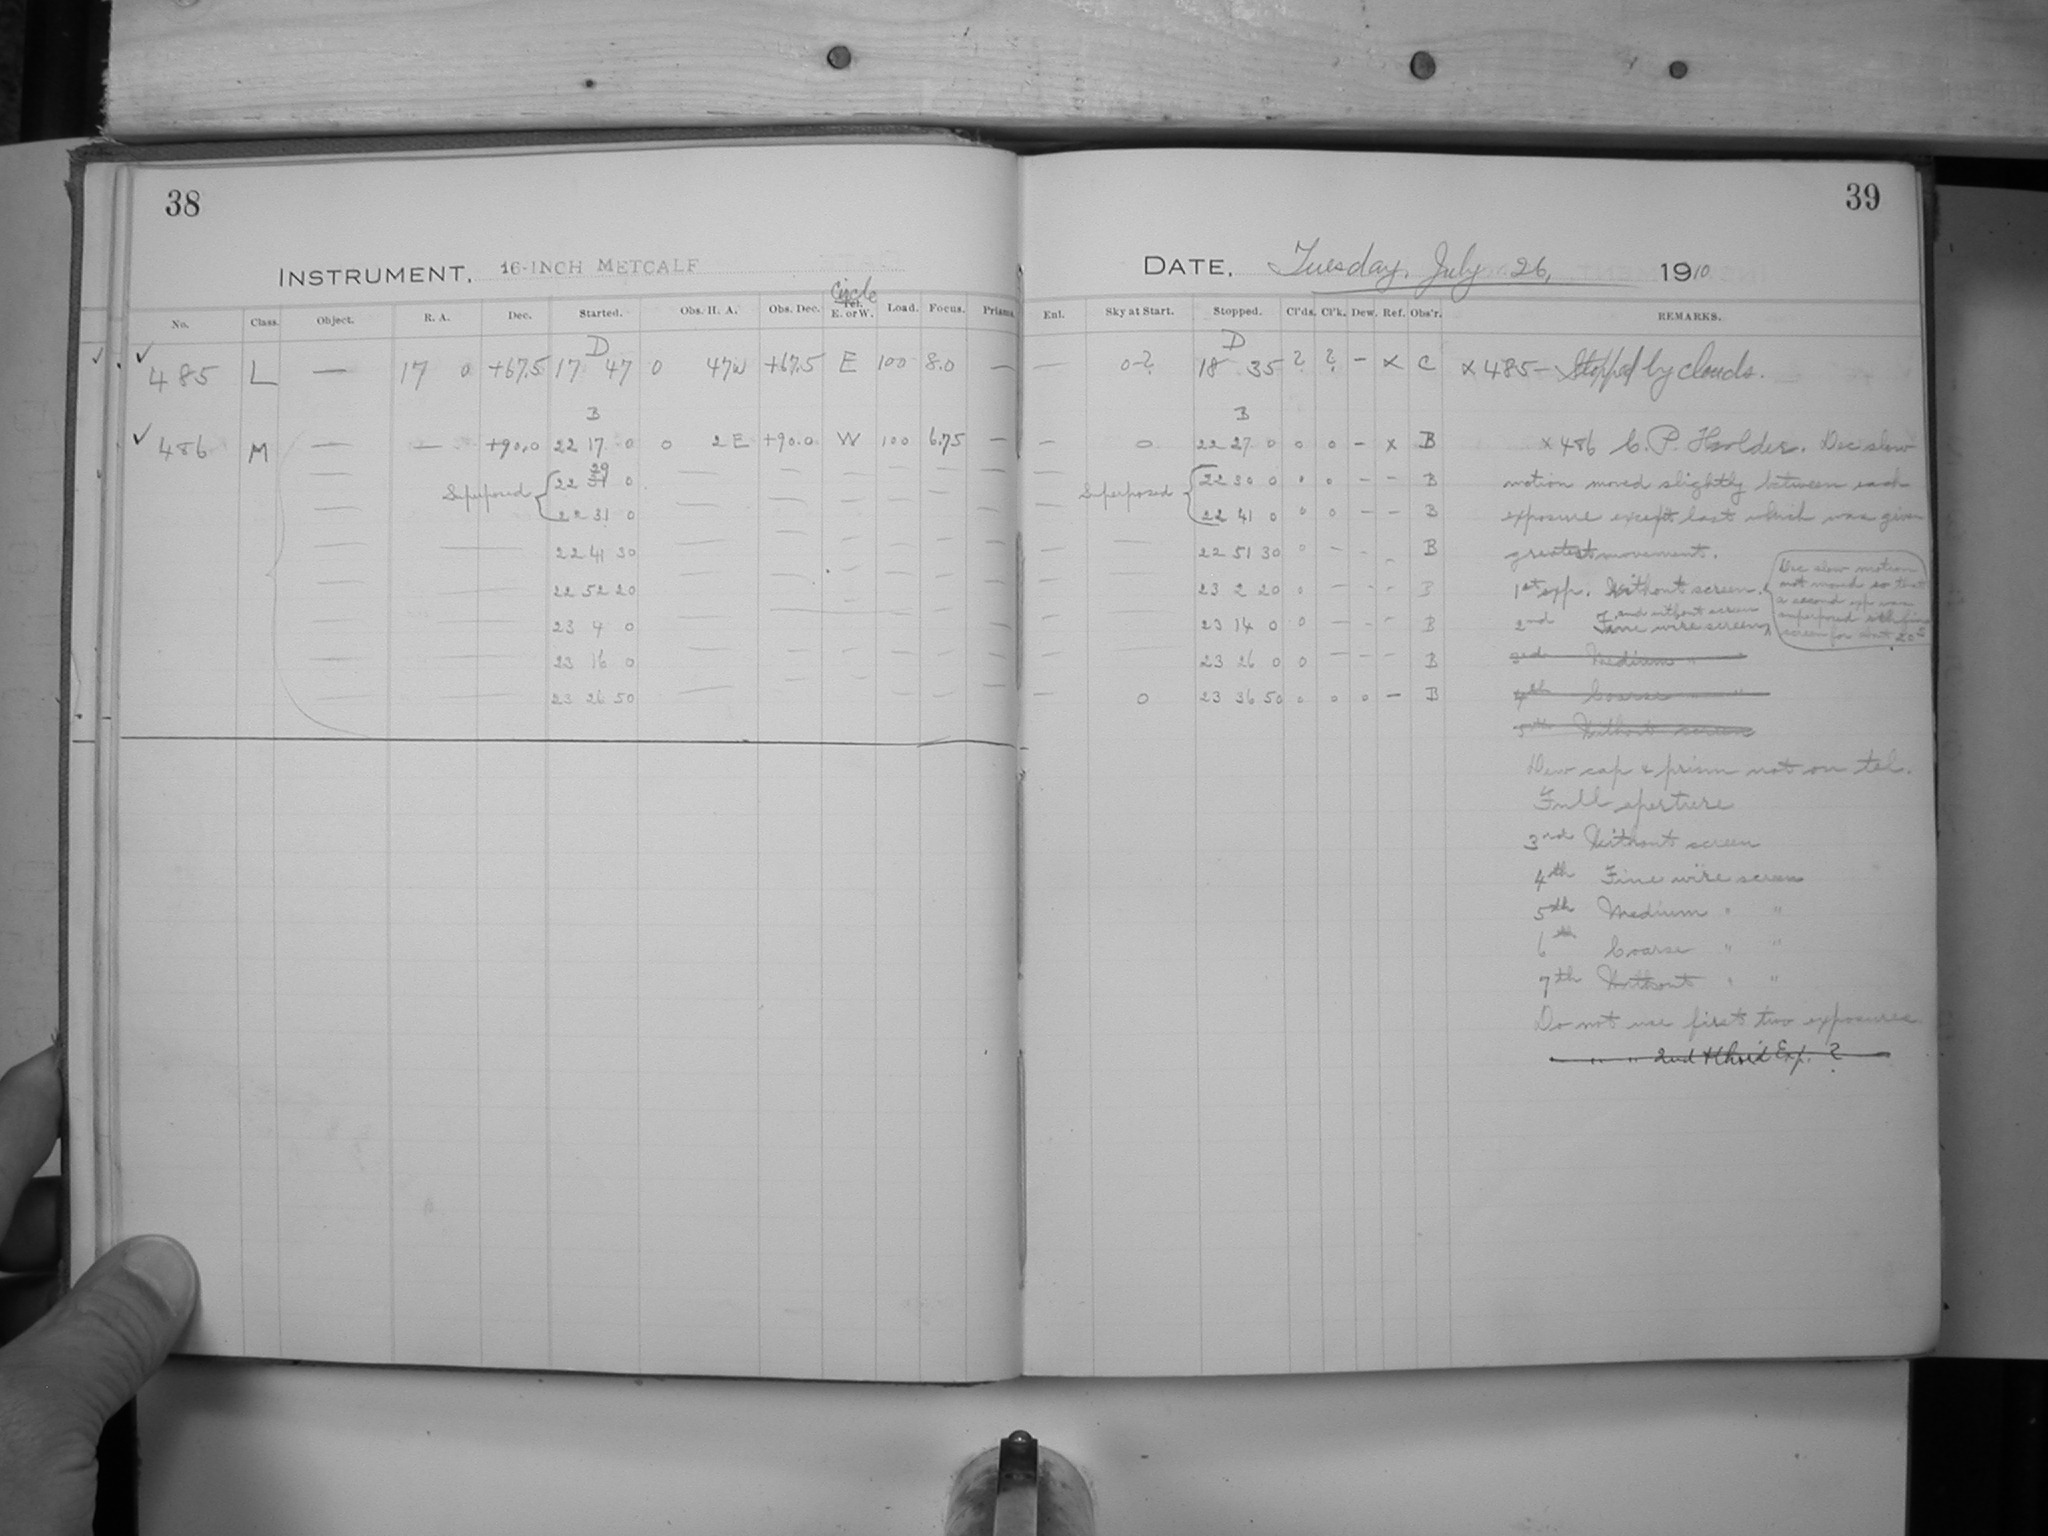 38
INSTRUMENT, 16-INCH METCALF
No. Class. Object. R. A. Dec. Started. Obs. H. A. Obs. Dec. Circle Tel. E. or W. Load. Focus. Prisms.
D
✓ 485 L — 17 0 +67.5 17 47 0 47W +67.5 E 100 8.0 —
B
✓ 486 M — — +90.0 22 17 0 0 2 E +90.0 W 100 6.75 —
Superposed { 22 29 0
22 31 0
22 41 30
22 52 20
23 4 0
23 16 0
23 26 50
39
DATE, Tuesday, July 26, 1910
Enl. Sky at Start. Stopped. Cl'ds. Cl'k. Dew. Ref. Obs'r. REMARKS.
D
— 0-? 18 35 ? ? — x C x 485 — Stopped by clouds.
B
— 0 22 27 0 0 0 — x B x 486 C. P. Holder. Dec slow
Superposed { 22 30 0 0 0 — — B motion moved slightly between each
22 41 0 0 0 — — B exposure except last which was given
— — 22 51 30 0 — - - B greatest movement.
— — 23 2 20 0 — - - B 1st exp. Without screen.
Dec slow motion
not moved so that
a second exp was
superposed with fine
screen for about 20s
— — 23 14 0 0 — - - B 2nd Fine wire screen and without screen
— — 23 26 0 0 — - - B 3rd Medium "
— 0 23 36 50 0 0 0 — B 4th Coarse "
5th Without screen
Dew cap & prism not on tel.
Full aperture
3rd Without screen
4th Fine wire screen
5th Medium " "
6th Coarse " "
7th Without " "
Do not use first two exposures
" " 2nd & third Exp. ?